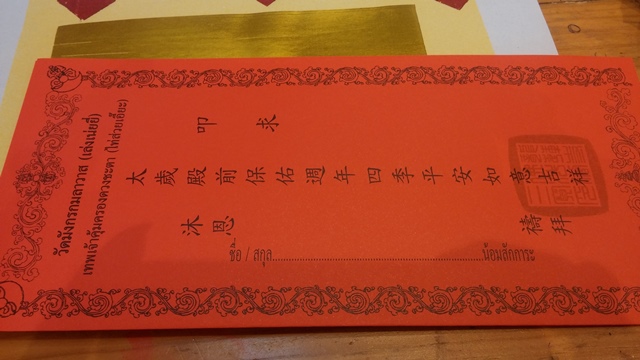 วัดมังกรกมลาวาส (เล่งเน่ยยี่)
เทพเจ้าคุ้มครองดวงชะตา (ไท้ส่วยเอี๊ยะ)
叩求
太歲殿前保佑週年四季平安如意吉祥
沐恩
ชื่อ / สกุล
น้อมสักการะ
禱拜